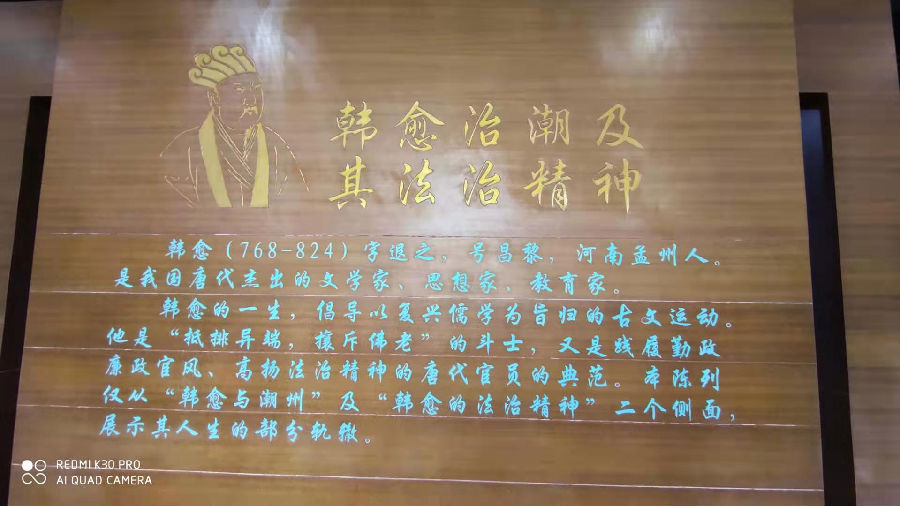 韩愈治潮及
其法治精神
韩愈（768-824）字退之，号昌黎，河南孟州人。
是我国唐代杰出的文学家、思想家、教育家。
韩愈的一生，倡导以复兴儒学为旨归的古文运动。
他是“抵排异端，攘斥佛老”的斗士，又是践履勤政
廉政官风、高扬法治精神的唐代官员的典范。本陈列
仅从“韩愈与潮州”及“韩愈的法治精神”二个侧面，
展示其人生的部分轨辙。
REDMI K30 PRO
AI QUAD CAMERA